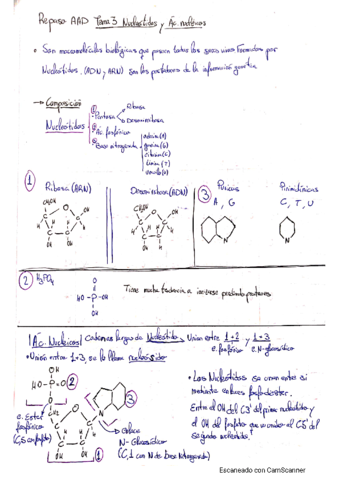 Repaso AAD Tema 3 Nucleótidos y Ác. nucleicos
• Son macromoléculas biológicas que poseen todos los seres vivos formados por
Nucleótidos. (ADN y ARN) son las portadoras de la información genética
→ Composición
Nucleótidos
① Pentosa
Ribosa
Desoxirribosa
② Ác. fosfórico
③ Base nitrogenada
adenina (A)
guanina (G)
citosina (C)
timina (T)
uracilo (U)
①
Ribosa (ARN)
Desoxirribosa (ADN)
③
Púricas
A, G
Pirimidínicas
C, T, U
CH₂OH
O
OH
H
N
② H₃PO₄
O
HO-P-OH
OH
Tiene mucha tendencia a
protones
Ác. Nucleicos
Cadenas largas de Nucleótidos. Unión entre 1+2 y 1+3
e. fosfórico
e. N-glucosídico
• Unión entre 1+3, se le llama nucleósido
OH
HO-P=O
②
O
CH₂
③
e. Ester
fosfórico
(C5 con fosfato)
①
e. N-Glucosídico
(C1 con N de base Nitrogenada)
• Los Nucleótidos se unen entre sí
mediante enlaces fosfodiéster.
Entre el OH del C3' del primer nucleótido y
el OH del fosfato que va unido al C5' del
segundo nucleótido.
Escaneado con CamScanner